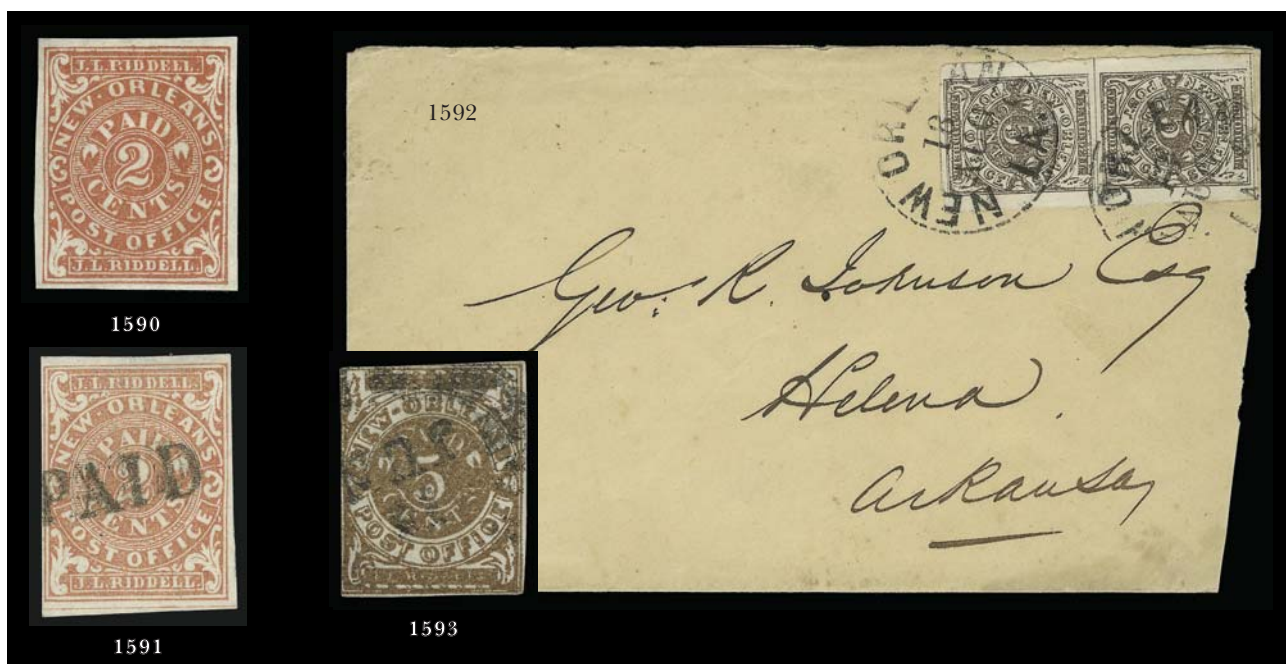 J.L.RIDDELL.
NEW·ORLEANS
PAID
2
CENTS
POST OFFICE
J.L.RIDDELL.
1590
J.L.RIDDELL.
NEW·ORLEANS
PAID
2
CENTS
POST OFFICE
J.L.RIDDELL.
PAID
1591
1592
NEW ORLEANS
LA.
Geo. R. Johnson Esq
Helena.
Arkansas
NEW·ORLEANS
5
POST OFFICE
1593